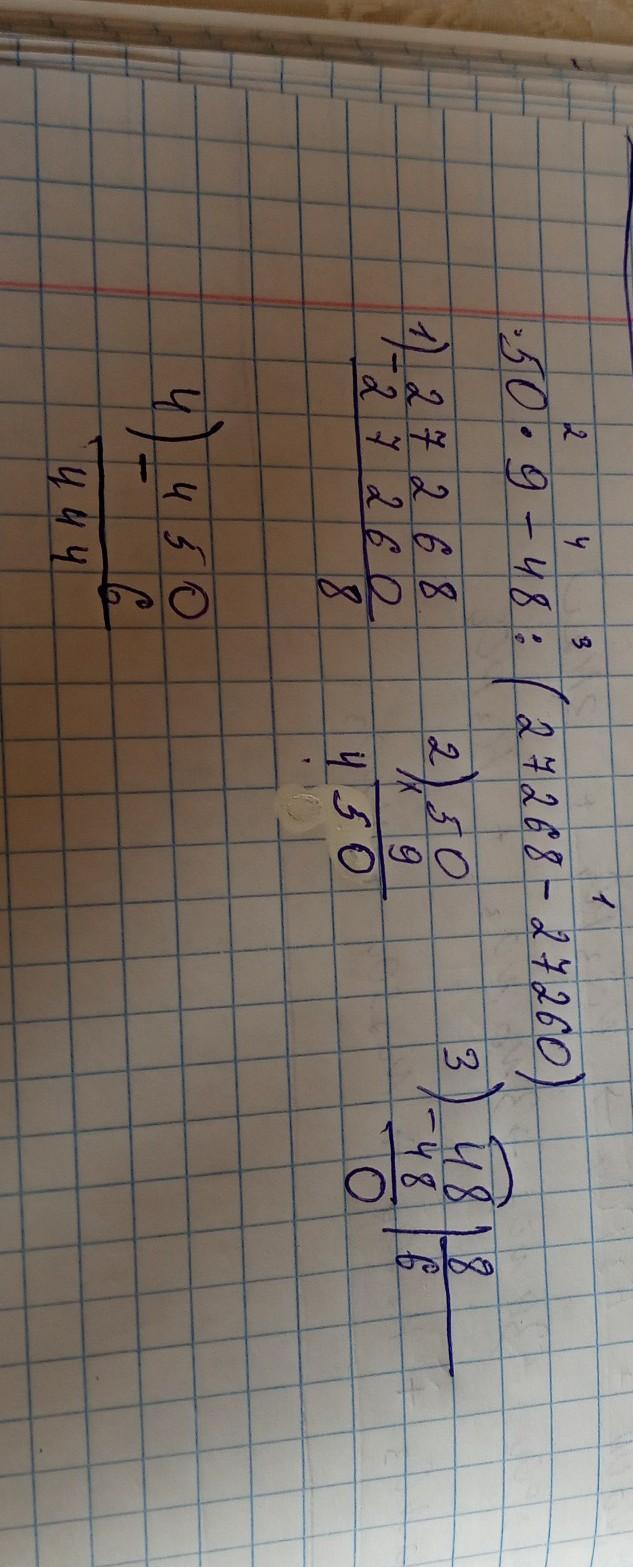 2 4 3 1
50 · 9 - 48 : (27268 - 27260)
1) 27268
- 27260
8
2) 50
x 9
450
3) 48 | 8
- 48 | 6
0
4) 450
- 6
444